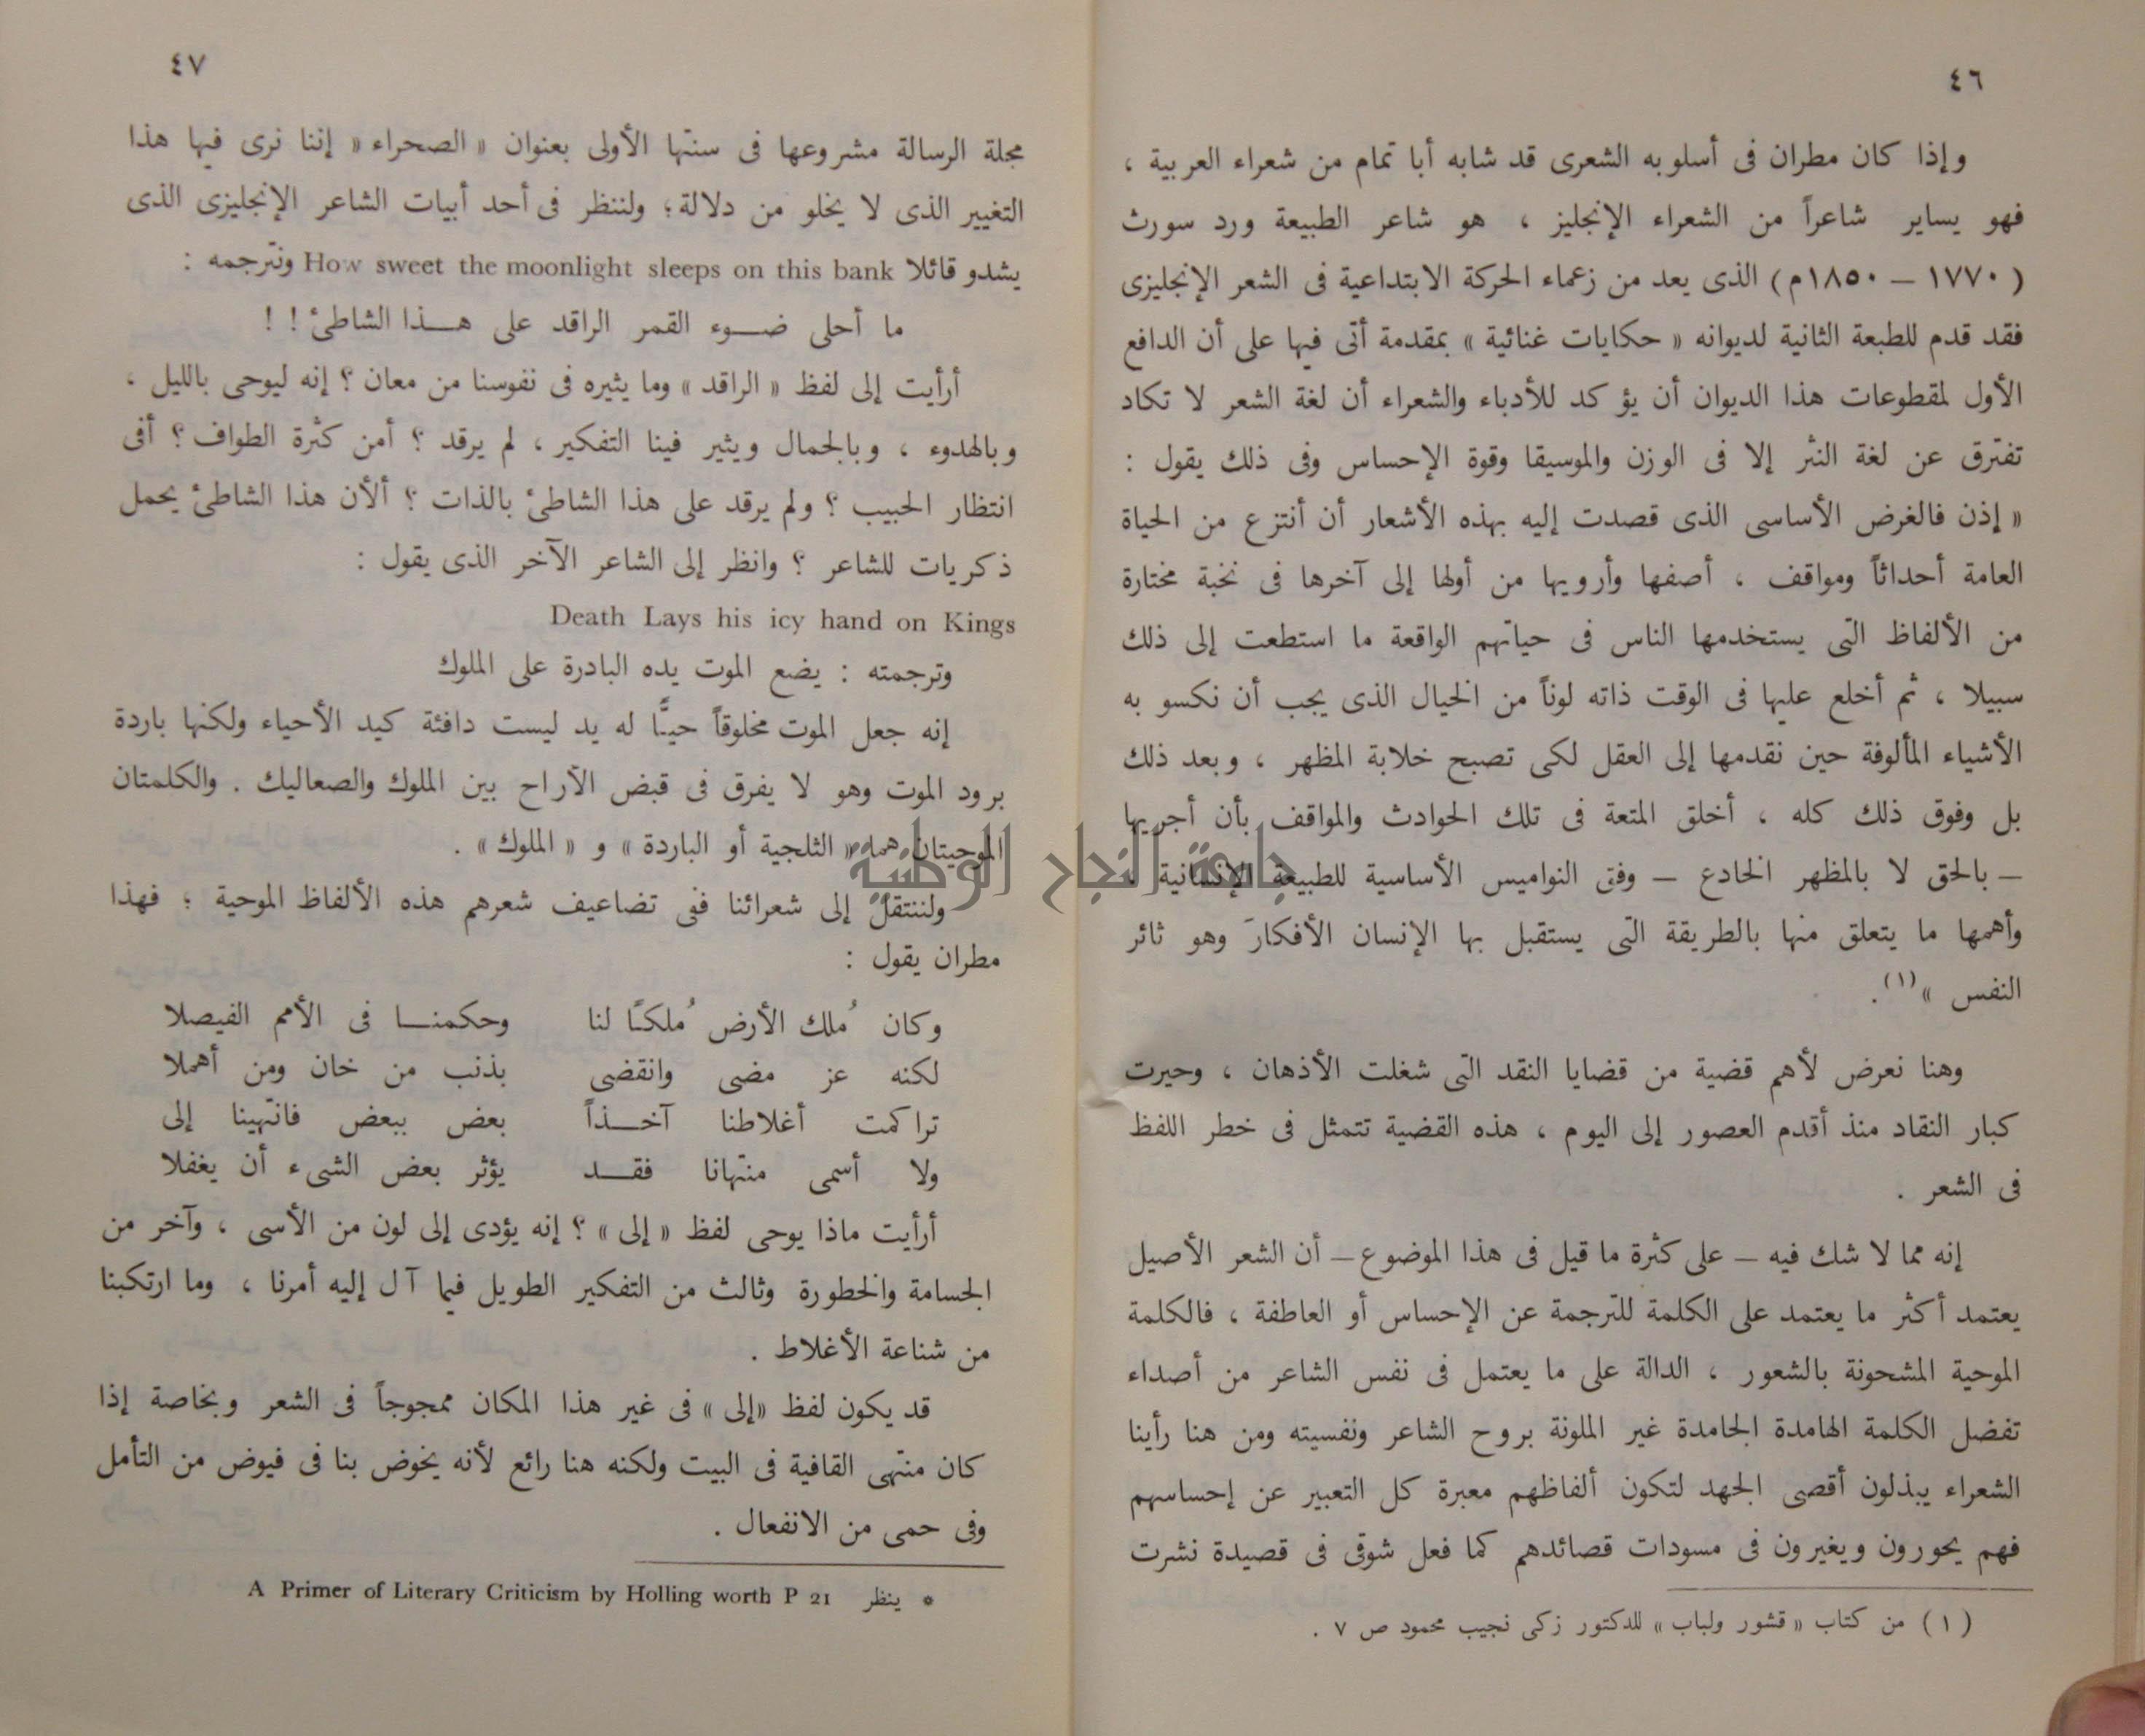 ٤٦
وإذا كان مطران فى أسلوبه الشعرى قد شابه أبا تمام من شعراء العربية ،
فهو يساير شاعراً من الشعراء الإنجليز ، هو شاعر الطبيعة ورد سورث
( ١٧٧٠ – ١٨٥٠م ) الذى يعد من زعماء الحركة الابتداعية فى الشعر الإنجليزى
فقد قدم للطبعة الثانية لديوانه « حكايات غنائية » بمقدمة أتى فيها على أن الدافع
الأول لمقطوعات هذا الديوان أن يؤكد للأدباء والشعراء أن لغة الشعر لا تكاد
تفترق عن لغة النثر إلا فى الوزن والموسيقا وقوة الإحساس وفى ذلك يقول :
« إذن فالغرض الأساسى الذى قصدت إليه بهذه الأشعار أن أنتزع من الحياة
العامة أحداثاً ومواقف ، أصفها وأرويها من أولها إلى آخرها فى نخبة مختارة
من الألفاظ التى يستخدمها الناس فى حياتهم الواقعة ما استطعت إلى ذلك
سبيلا ، ثم أخلع عليها فى الوقت ذاته لوناً من الخيال الذى يجب أن نكسو به
الأشياء المألوفة حين نقدمها إلى العقل لكى تصبح خلابة المظهر ، وبعد ذلك
بل وفوق ذلك كله ، أخلق المتعة فى تلك الحوادث والمواقف بأن أجريها
– بالحق لا بالمظهر الخادع – وفق النواميس الأساسية للطبيعة الإنسانية ،
وأهمها ما يتعلق منها بالطريقة التى يستقبل بها الإنسان الأفكارَ وهو ثائر
النفس »(١).
وهنا نعرض لأهم قضية من قضايا النقد التى شغلت الأذهان ، وحيرت
كبار النقاد منذ أقدم العصور إلى اليوم ، هذه القضية تتمثل فى خطر اللفظ
فى الشعر .
إنه مما لا شك فيه – على كثرة ما قيل فى هذا الموضوع – أن الشعر الأصيل
يعتمد أكثر ما يعتمد على الكلمة للترجمة عن الإحساس أو العاطفة ، فالكلمة
الموحية المشحونة بالشعور ، الدالة على ما يعتمل فى نفس الشاعر من أصداء
تفضل الكلمة الهامدة الجامدة غير الملونة بروح الشاعر ونفسيته ومن هنا رأينا
الشعراء يبذلون أقصى الجهد لتكون ألفاظهم معبرة كل التعبير عن إحساسهم
فهم يحورون ويغيرون فى مسودات قصائدهم كما فعل شوقى فى قصيدة نشرت
( ١ ) من كتاب « قشور ولباب » للدكتور زكى نجيب محمود ص ٧ .
٤٧
مجلة الرسالة مشروعها فى سنتها الأولى بعنوان « الصحراء » إننا نرى فيها هذا
التغيير الذى لا يخلو من دلالة ؛ ولننظر فى أحد أبيات الشاعر الإنجليزى الذى
يشدو قائلا How sweet the moonlight sleeps on this bank ونترجمه :
ما أحلى ضوء القمر الراقد على هذا الشاطئ ! !
أرأيت إلى لفظ « الراقد » وما يثيره فى نفوسنا من معان ؟ إنه ليوحى بالليل ،
وبالهدوء ، وبالجمال ويثير فينا التفكير ، لم يرقد ؟ أمن كثرة الطواف ؟ أفى
انتظار الحبيب ؟ ولم يرقد على هذا الشاطئ بالذات ؟ ألأن هذا الشاطئ يحمل
ذكريات للشاعر ؟ وانظر إلى الشاعر الآخر الذى يقول :
Death Lays his icy hand on Kings
وترجمته : يضع الموت يده البادرة على الملوك
إنه جعل الموت مخلوقاً حيًّا له يد ليست دافئة كيد الأحياء ولكنها باردة
برود الموت وهو لا يفرق فى قبض الآراح بين الملوك والصعاليك . والكلمتان
الموحيتان هما « الثلجية أو الباردة » و « الملوك » .
ولننتقل إلى شعرائنا ففى تضاعيف شعرهم هذه الألفاظ الموحية ؛ فهذا
مطران يقول :
وكان مُلك الأرض مُلكًا لنا وحكمنا فى الأمم الفيصلا
لكنه عز مضى وانقضى بذنب من خان ومن أهملا
تراكمت أغلاطنا آخذاً بعض ببعض فانتهينا إلى
ولا أسمى منتهانا فقد يؤثر بعض الشىء أن يغفلا
أرأيت ماذا يوحى لفظ « إلى » ؟ إنه يؤدى إلى لون من الأسى ، وآخر من
الجسامة والخطورة وثالث من التفكير الطويل فيما آل إليه أمرنا ، وما ارتكبنا
من شناعة الأغلاط .
قد يكون لفظ «إلى» فى غير هذا المكان ممجوجاً فى الشعر وبخاصة إذا
كان منتهى القافية فى البيت ولكنه هنا رائع لأنه يخوض بنا فى فيوض من التأمل
وفى حمى من الانفعال .
* ينظر A Primer of Literary Criticism by Holling worth P 21
جامعة النجاح الوطنية